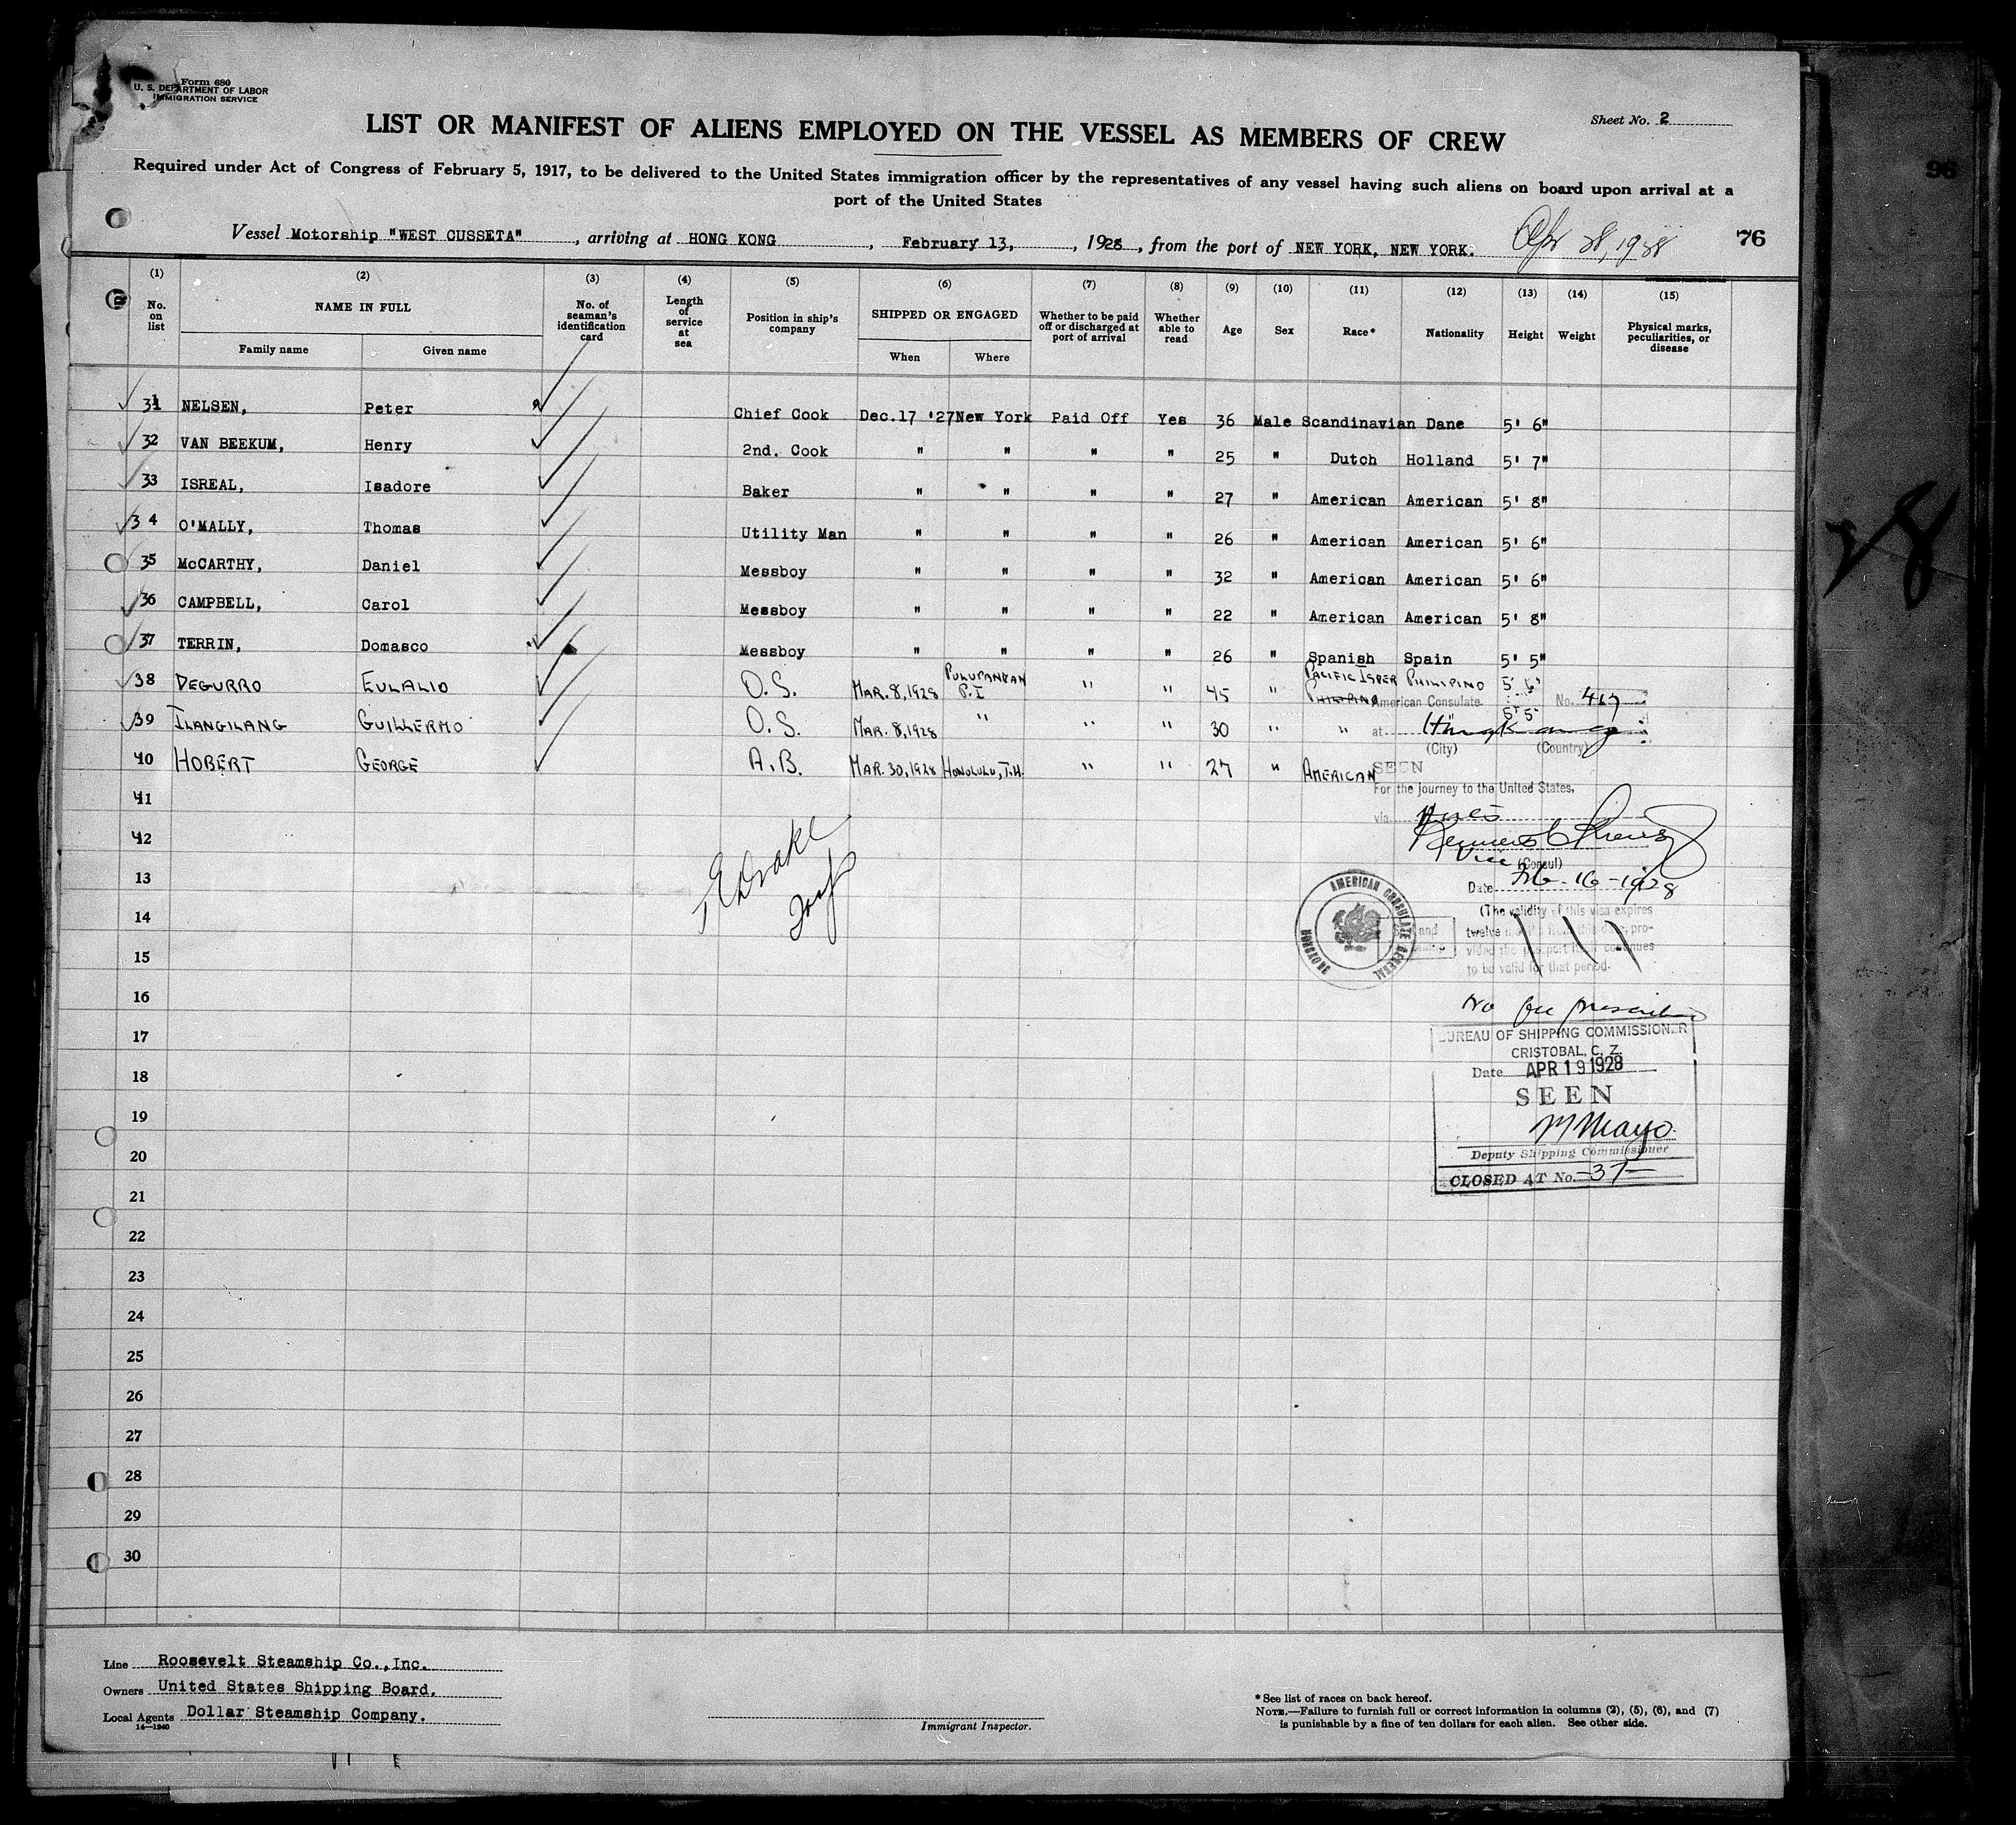 Form 680
U. S. DEPARTMENT OF LABOR
IMMIGRATION SERVICE
Sheet No. 2
LIST OR MANIFEST OF ALIENS EMPLOYED ON THE VESSEL AS MEMBERS OF CREW
Required under Act of Congress of February 5, 1917, to be delivered to the United States immigration officer by the representatives of any vessel having such aliens on board upon arrival at a
port of the United States
Vessel Motorship "WEST CUSSETA", arriving at HONG KONG, February 13, 1928, from the port of NEW YORK, NEW YORK. Apr 28, 1928 76
96
(1) (2) (3) (4) (5) (6) (7) (8) (9) (10) (11) (12) (13) (14) (15)
No. on list NAME IN FULL No. of seaman's identification card Length of service at sea Position in ship's company SHIPPED OR ENGAGED Whether to be paid off or discharged at port of arrival Whether able to read Age Sex Race* Nationality Height Weight Physical marks, peculiarities, or disease
Family name Given name When Where
31 NELSEN, Peter Chief Cook Dec.17 '27 New York Paid Off Yes 36 Male Scandinavian Dane 5' 6"
32 VAN BEEKUM, Henry 2nd. Cook " " " " 25 " Dutch Holland 5' 7"
33 ISREAL, Isadore Baker " " " " 27 " American American 5' 8"
34 O'MALLY, Thomas Utility Man " " " " 26 " American American 5' 6"
35 McCARTHY, Daniel Messboy " " " " 32 " American American 5' 6"
36 CAMPBELL, Carol Messboy " " " " 22 " American American 5' 8"
37 TERRIN, Domasco Messboy " " " " 26 " Spanish Spain 5' 5"
38 DEGURRO EULALIO O.S. MAR. 8, 1928 PULUPANDAN P.I " " 45 " PACIFIC ISPER PHILIPINO PHILIPINO 5' 6"
39 ILANGILANG GUILLERMO O.S. MAR. 8, 1928 " " " 30 " " 5' 5"
40 HOBERT GEORGE A.B. MAR. 30, 1928 HONOLULU, T.H. " " 27 " AMERICAN
41
42
13
14
15
16
17
18
19
20
21
22
23
24
25
26
27
28
29
30
American Consulate No. 417
at Hongkong
(City) (Country)
SEEN
For the journey to the United States,
via
Vice (Consul)
Date Feb-16-1928
(The validity of this visa expires
twelve months from this date, pro-
vided the passport continues
to be valid for that period.
AMERICAN CONSULATE GENERAL
HONGKONG
No fee prescribed
BUREAU OF SHIPPING COMMISSIONER
CRISTOBAL, C. Z.
Date APR 19 1928
SEEN
M Mayo
Deputy Shipping Commissioner
CLOSED AT No. -37-
28
Line Roosevelt Steamship Co., Inc.
Owners United States Shipping Board.
Local Agents Dollar Steamship Company.
14—1240
Immigrant Inspector.
*See list of races on back hereof.
NOTE.—Failure to furnish full or correct information in columns (2), (5), (6), and (7)
is punishable by a fine of ten dollars for each alien. See other side.